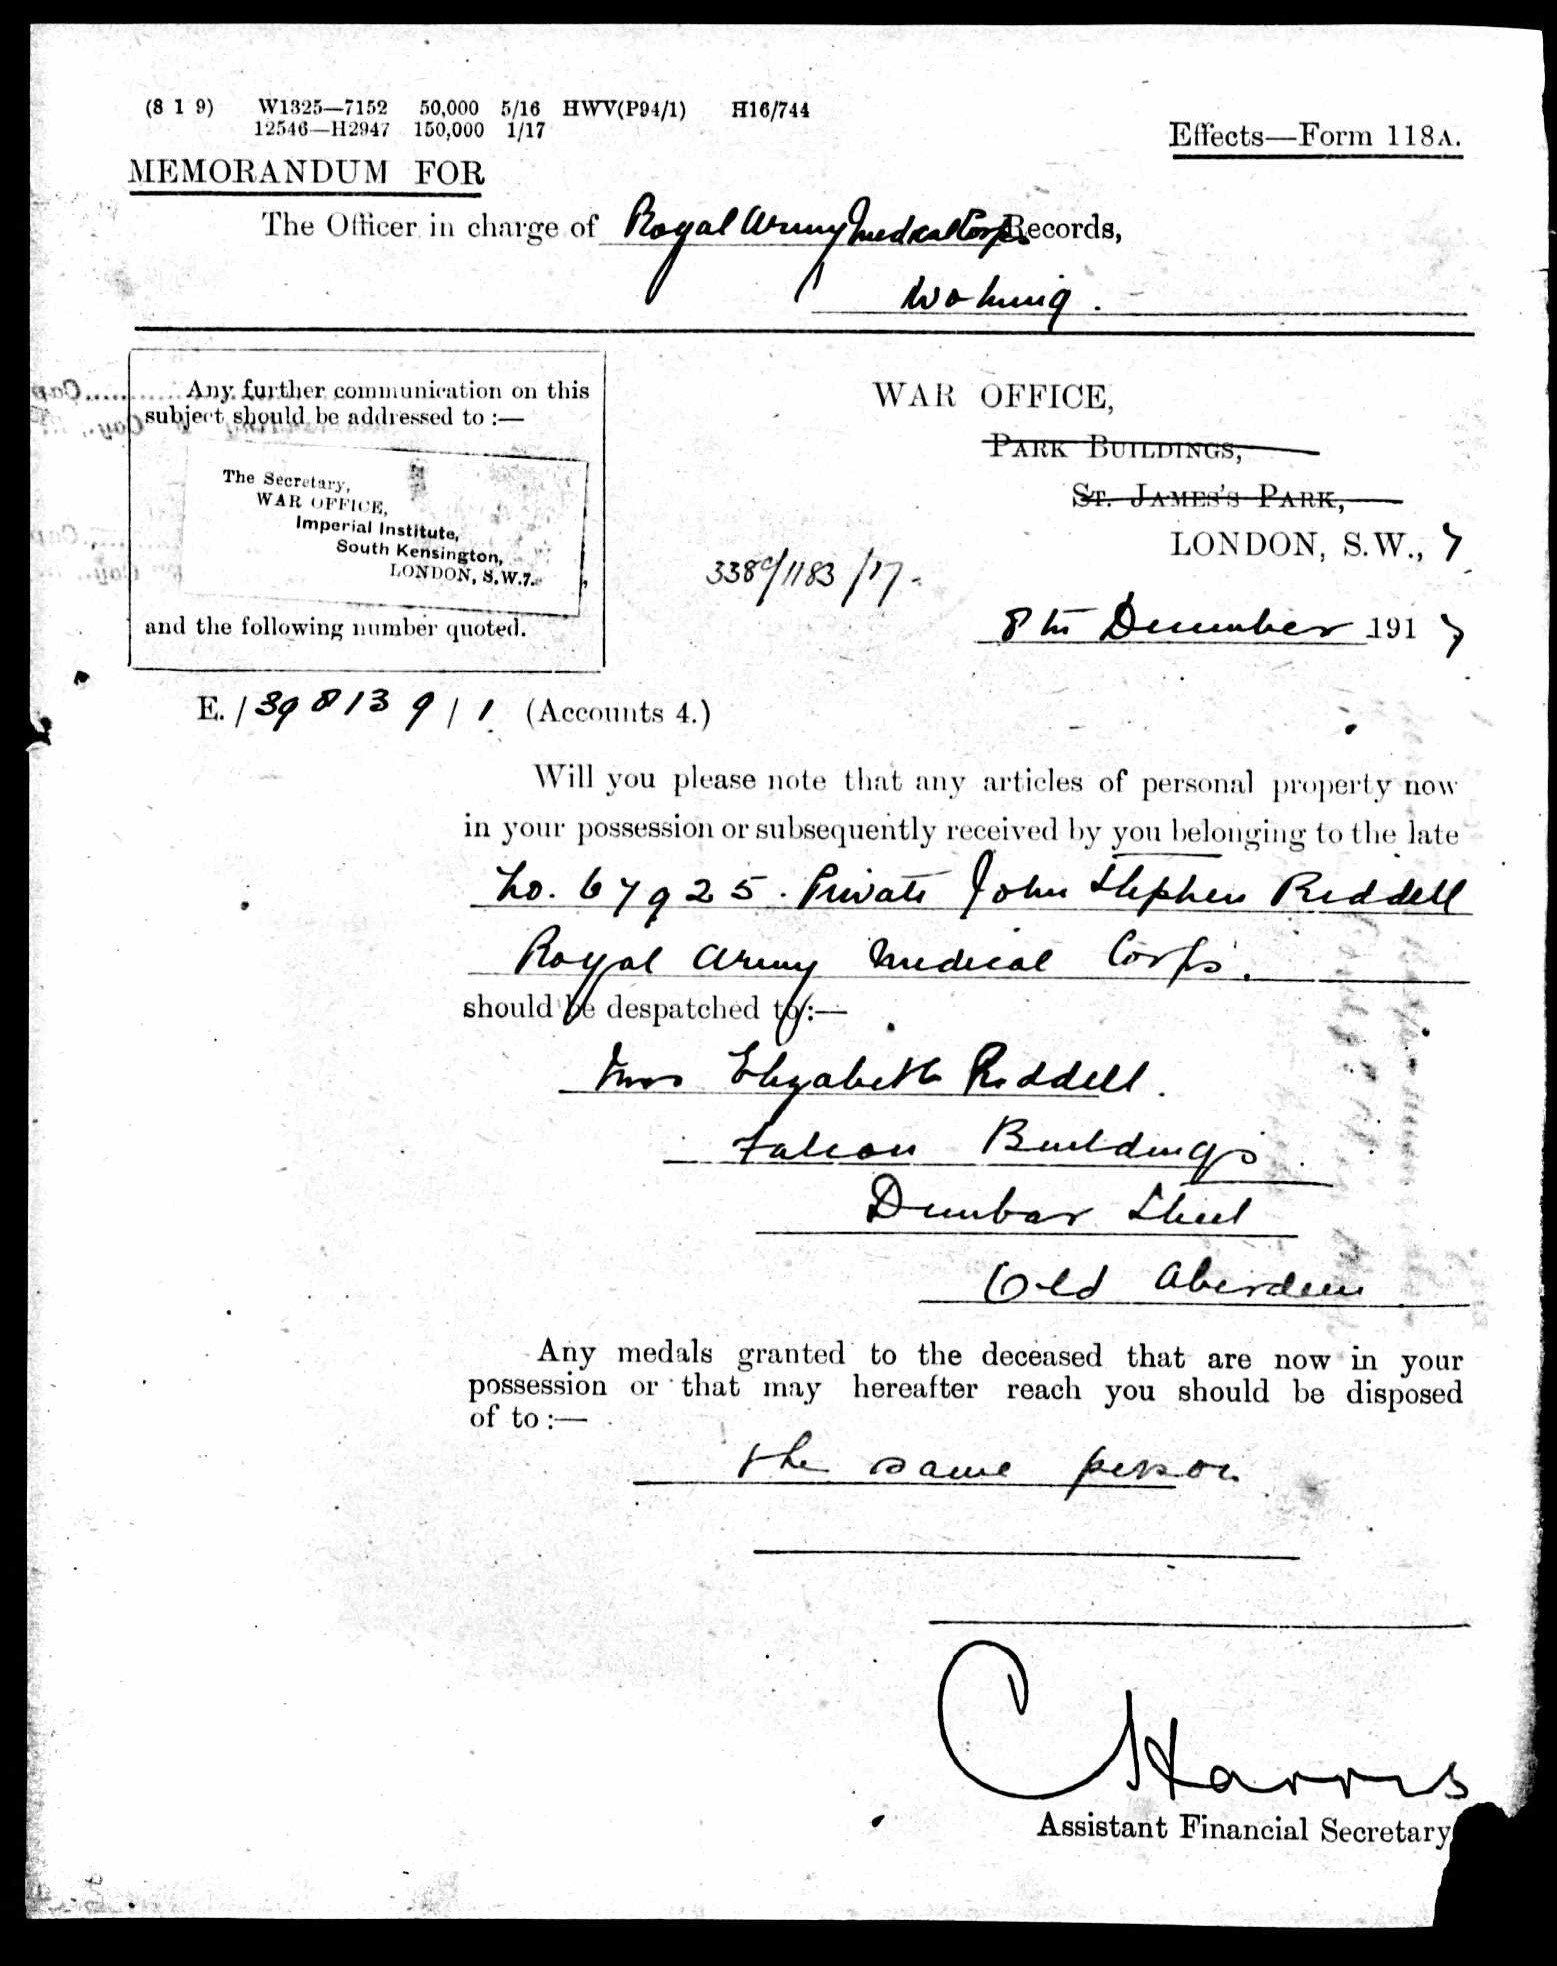 (8 1 9) W1325—7152 50,000 5/16 HWV(P94/1) H16/744
12546—H2947 150,000 1/17
Effects—Form 118A.
MEMORANDUM FOR
The Officer in charge of Royal Army Medical Corps Records,
Woking.
Any further communication on this
subject should be addressed to :—
The Secretary,
WAR OFFICE,
Imperial Institute,
South Kensington,
LONDON, S.W.7.
and the following number quoted.
WAR OFFICE,
PARK BUILDINGS,
ST. JAMES'S PARK,
LONDON, S.W., 7
8th December 1917
E./398139/1 (Accounts 4.)
Will you please note that any articles of personal property now
in your possession or subsequently received by you belonging to the late
No. 67925. Private John Stephen Riddell
Royal Army Medical Corps.
should be despatched to :—
Mrs Elizabeth Riddell.
Falcon Buildings
Dunbar Street
Old Aberdeen
Any medals granted to the deceased that are now in your
possession or that may hereafter reach you should be disposed
of to :—
the same person
C Harris
Assistant Financial Secretary